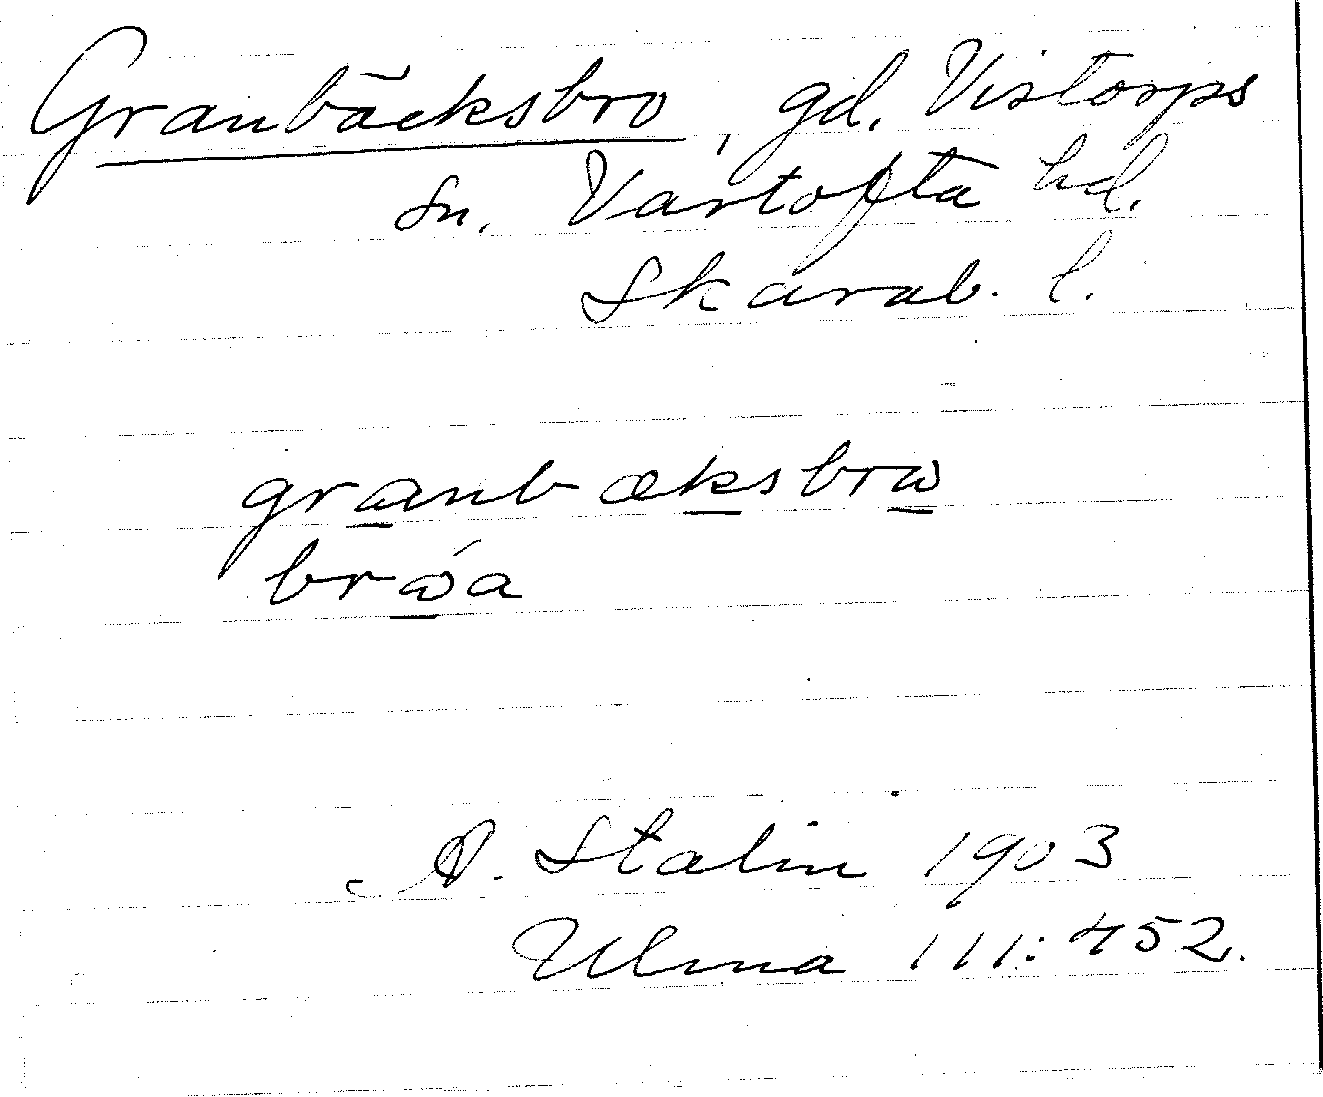 Granbäcksbro, gd. Vistorps
sn. Vartofta hd.
Skarab. l.
granbæksbrω
brώa
A. Stalin 1903
Ulma 111:452.